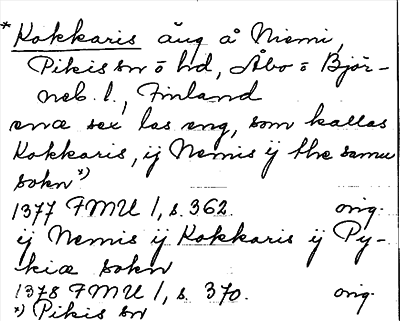 *Kokkaris äng å Niemi,
Pikis sn o hd, Åbo o Björ-
neb. l., Finland
enæ sex las eng, som kallas
Kokkaris, ij Nemis ij the samu
sokn *)
1377 FMU 1, s. 362. orig.
ij Nemis ij Kokkaris ij Py-
kiæ sokn
1378 FMU 1, s. 370. orig.
*) Pikis sn